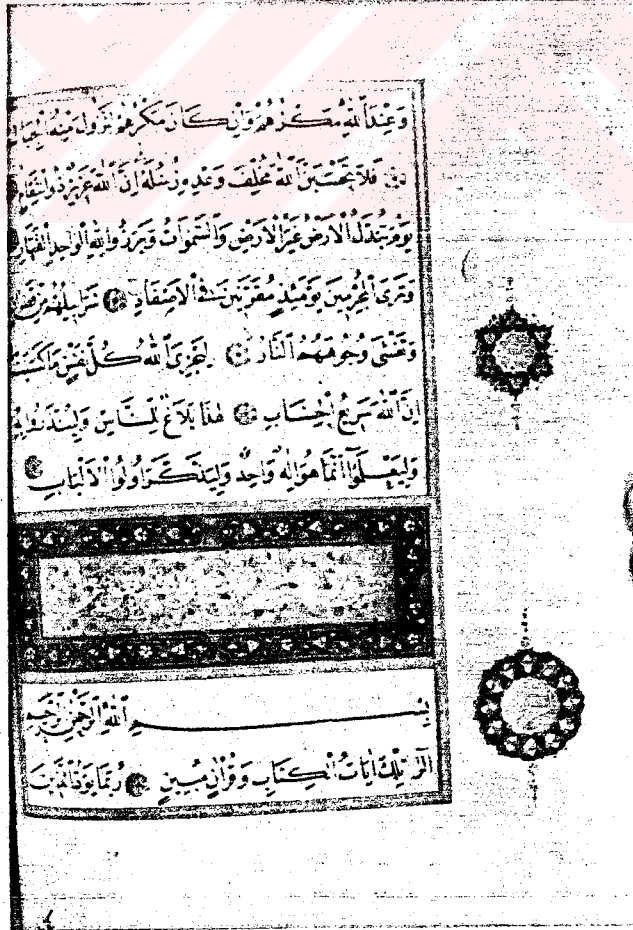 وَعِنْدَ اللّٰهِ مَكْرُهُمْ وَاِنْ كَانَ مَكْرُهُمْ لِتَزُولَ مِنْهُ الْجِبَالُ
فَلَا تَحْسَبَنَّ اللّٰهَ مُخْلِفَ وَعْدِهِ رُسُلَهُ اِنَّ اللّٰهَ عَزِيزٌ ذُو انْتِقَامٍ
يَوْمَ تُبَدَّلُ الْاَرْضُ غَيْرَ الْاَرْضِ وَالسَّمٰوَاتُ وَبَرَزُوا لِلّٰهِ الْوَاحِدِ الْقَهَّارِ
وَتَرَى الْمُجْرِمِينَ يَوْمَئِذٍ مُقَرَّنِينَ فِي الْاَصْفَادِ سَرَابِيلُهُمْ مِنْ
وَتَغْشٰى وُجُوهَهُمُ النَّارُ لِيَجْزِيَ اللّٰهُ كُلَّ نَفْسٍ مَا كَسَبَتْ
اِنَّ اللّٰهَ سَرِيعُ الْحِسَابِ هٰذَا بَلَاغٌ لِلنَّاسِ وَلِيُنْذَرُوا بِهِ
وَلِيَعْلَمُوا اَنَّمَا هُوَ اِلٰهٌ وَاحِدٌ وَلِيَذَّكَّرَ اُولُوا الْاَلْبَابِ
بِسْمِ اللّٰهِ الرَّحْمٰنِ الرَّحِيمِ
الٓرٰ تِلْكَ اٰيَاتُ الْكِتَابِ وَقُرْاٰنٍ مُبِينٍ رُبَمَا يَوَدُّ الَّذِينَ